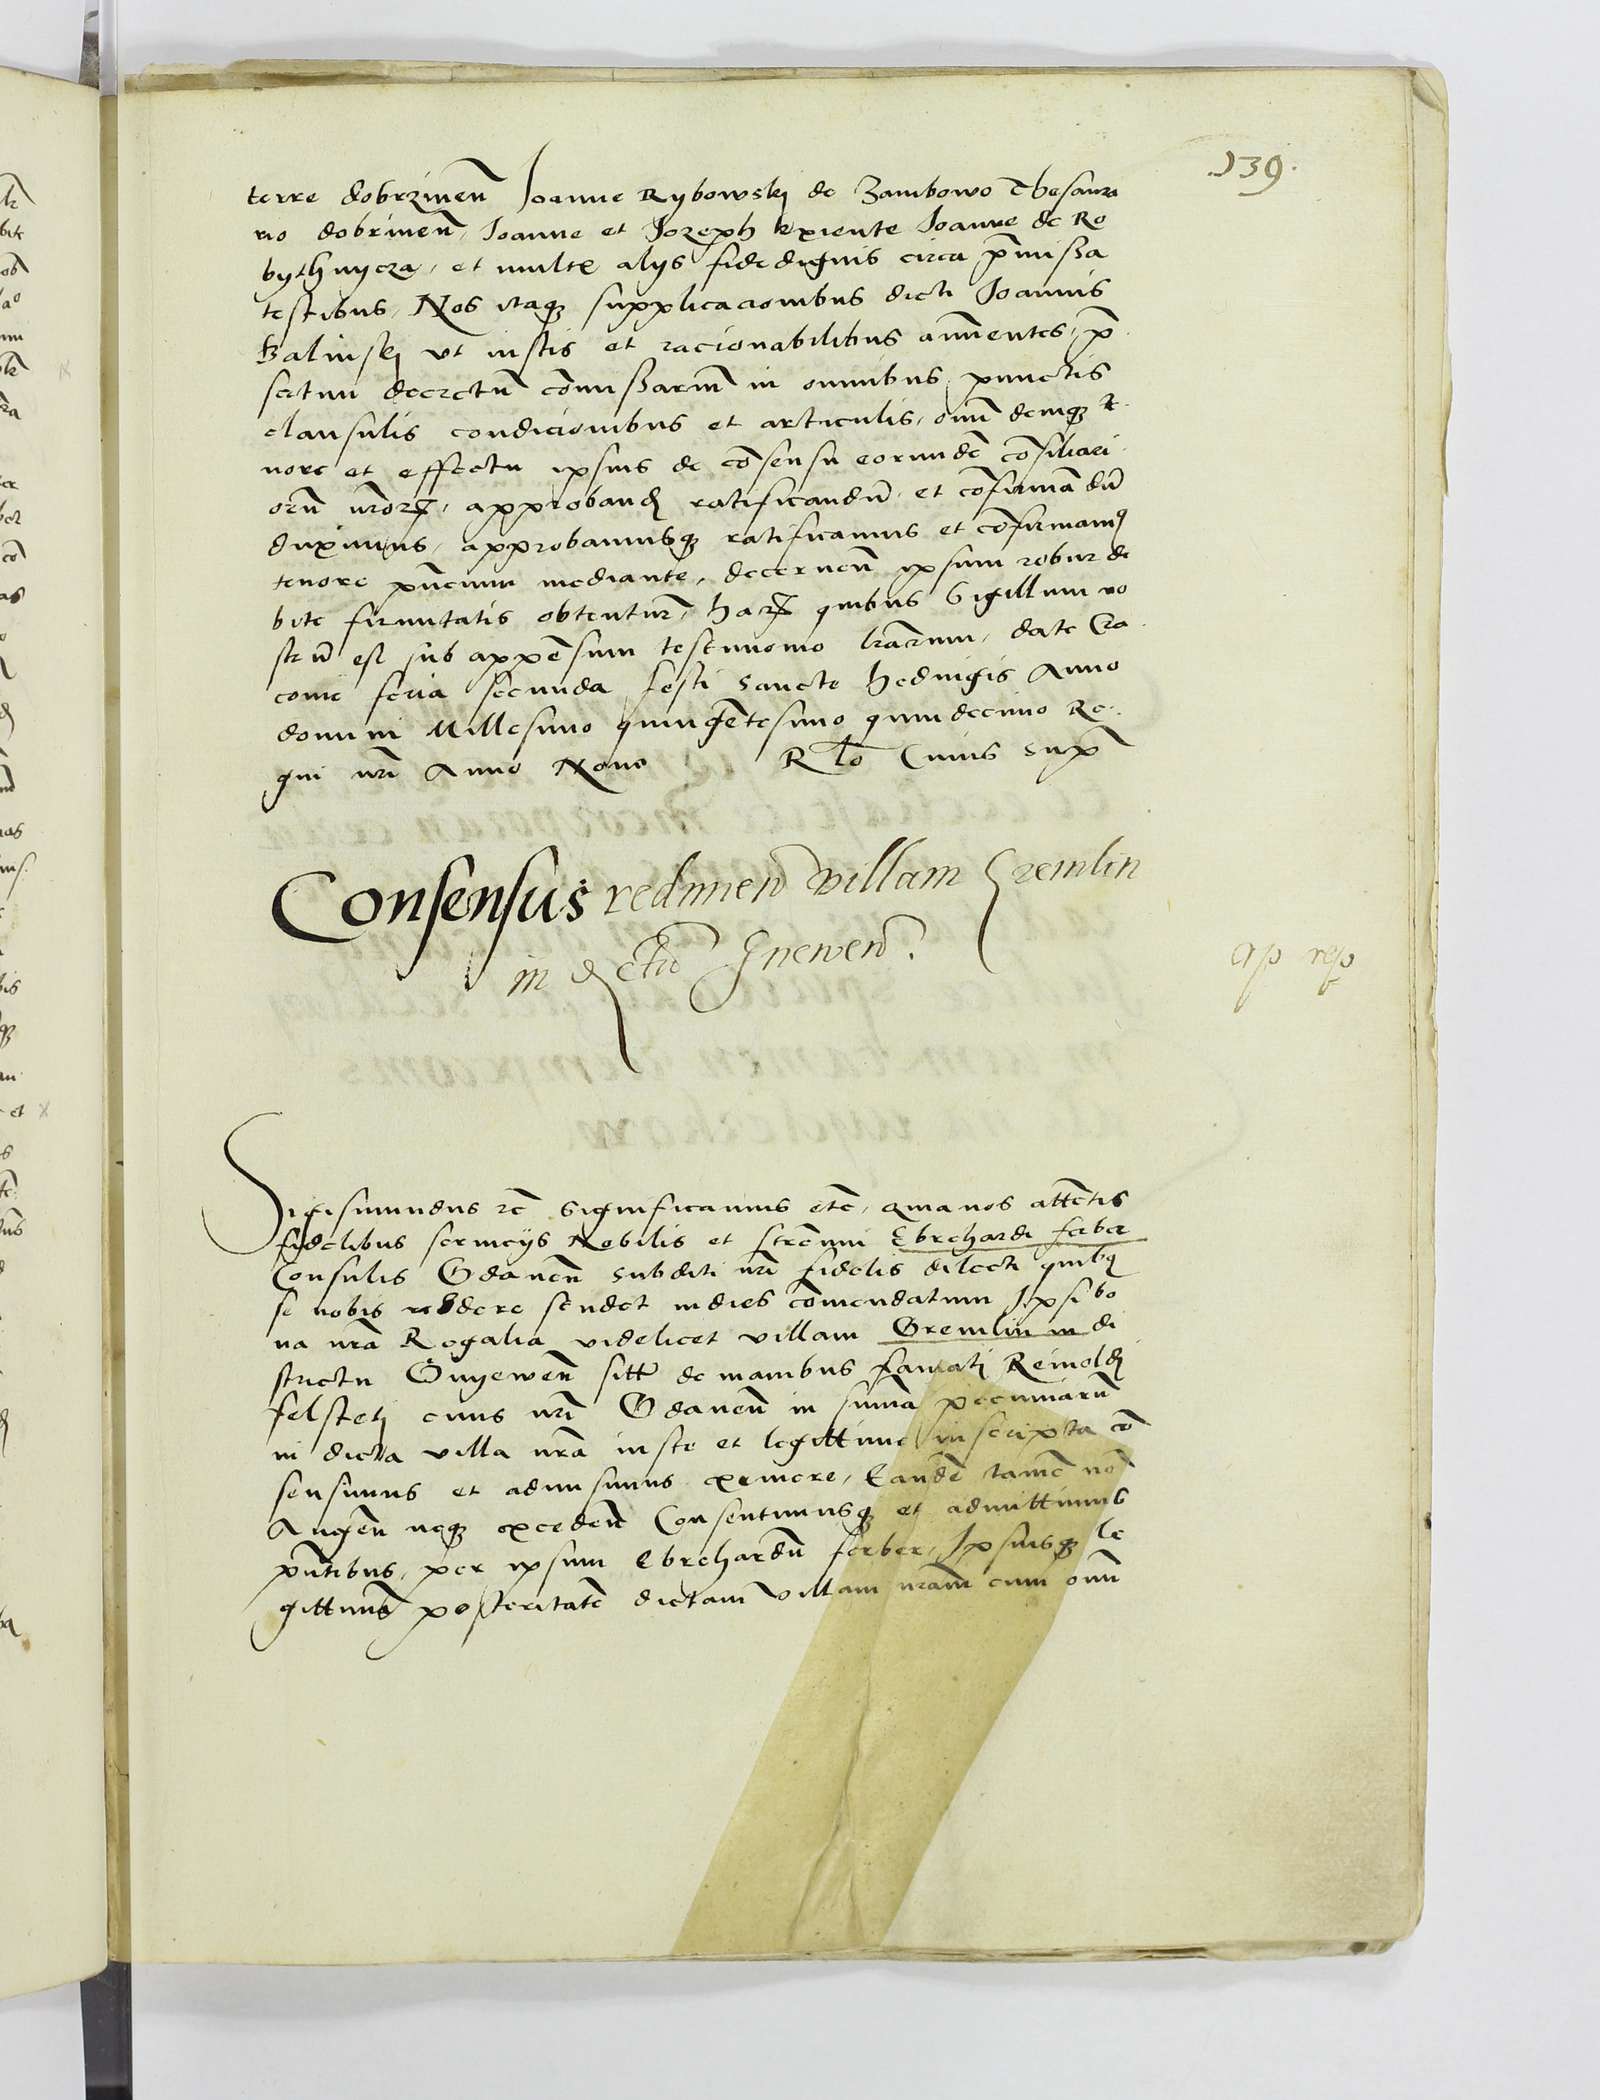 139.
terre dobrzinen̄ Joanne Rybowskj de Zambowo Thesaura
rio dobrinen̄, Joanne et Jozeph Joanne de Ro
bythnycza, et multis alijs fidedignis circa p̄missa
testibus, Nos itaqꝫ supplicacionibus dicti Joannis
Balinskj vt iustis et racionabilibus annuentes, p̄
fectum decretū com̄issariū in omnibus punctis
clausulis condicionibus et articulis, om̄i deniqꝫ te
nore et effectu ipsius de cōsensu eorundē cōsiliari
orū nr̄orꝝ, approband ratificandū, et cōfirmādū
duximus, approbamusqꝫ ratificamus et cōfirmamꝰ
tenore pn̄cium mediante, decernen̄ ipsum robur de
bite firmitatis obtenturū, harꝝ quibus Sigillum no
strū est sub appēsum testimonio lr̄arum, date Cra
couie feria secunda festi sancte hedwigis Anno
domini Millesimo quingētesimo quindecimo Re
gni nr̄i Anno Nono Rlo Cuius sup̄
Consensus redimen̄ villam Gremlin
in dctū Gnewen̄.
ap resp
Sigismundus rc̄ Significamus etc̄, quia nos attētis
fidelibus seruicijs Nobilis et strēnui Ebrehardi ferber
Consulis Gdanen̄ subditi nr̄i fidelis dilecti quibꝰ
se nobis reddere studet indies com̄endatum Ipsi bo
na nr̄a Regalia videlicet villam Gremlin in di
strictu Gnyewen̄ sitā de manibus famati Reinoldi
felstetj ciuis nr̄i Gdanen̄ in sum̄a pecuniarū
in dicta villa nr̄a iuste et legittime inscripta cō
sensimus et admisimus eximere, Eandē tamē nō
Augen̄ neqꝫ exceden̄ Consentimusqꝫ et admittimus
pn̄tibus, per ipsum Ebrehardū ferber, Ipsiusqꝫ le
gittimā posteritatē dictam villam nr̄am cum om̄i